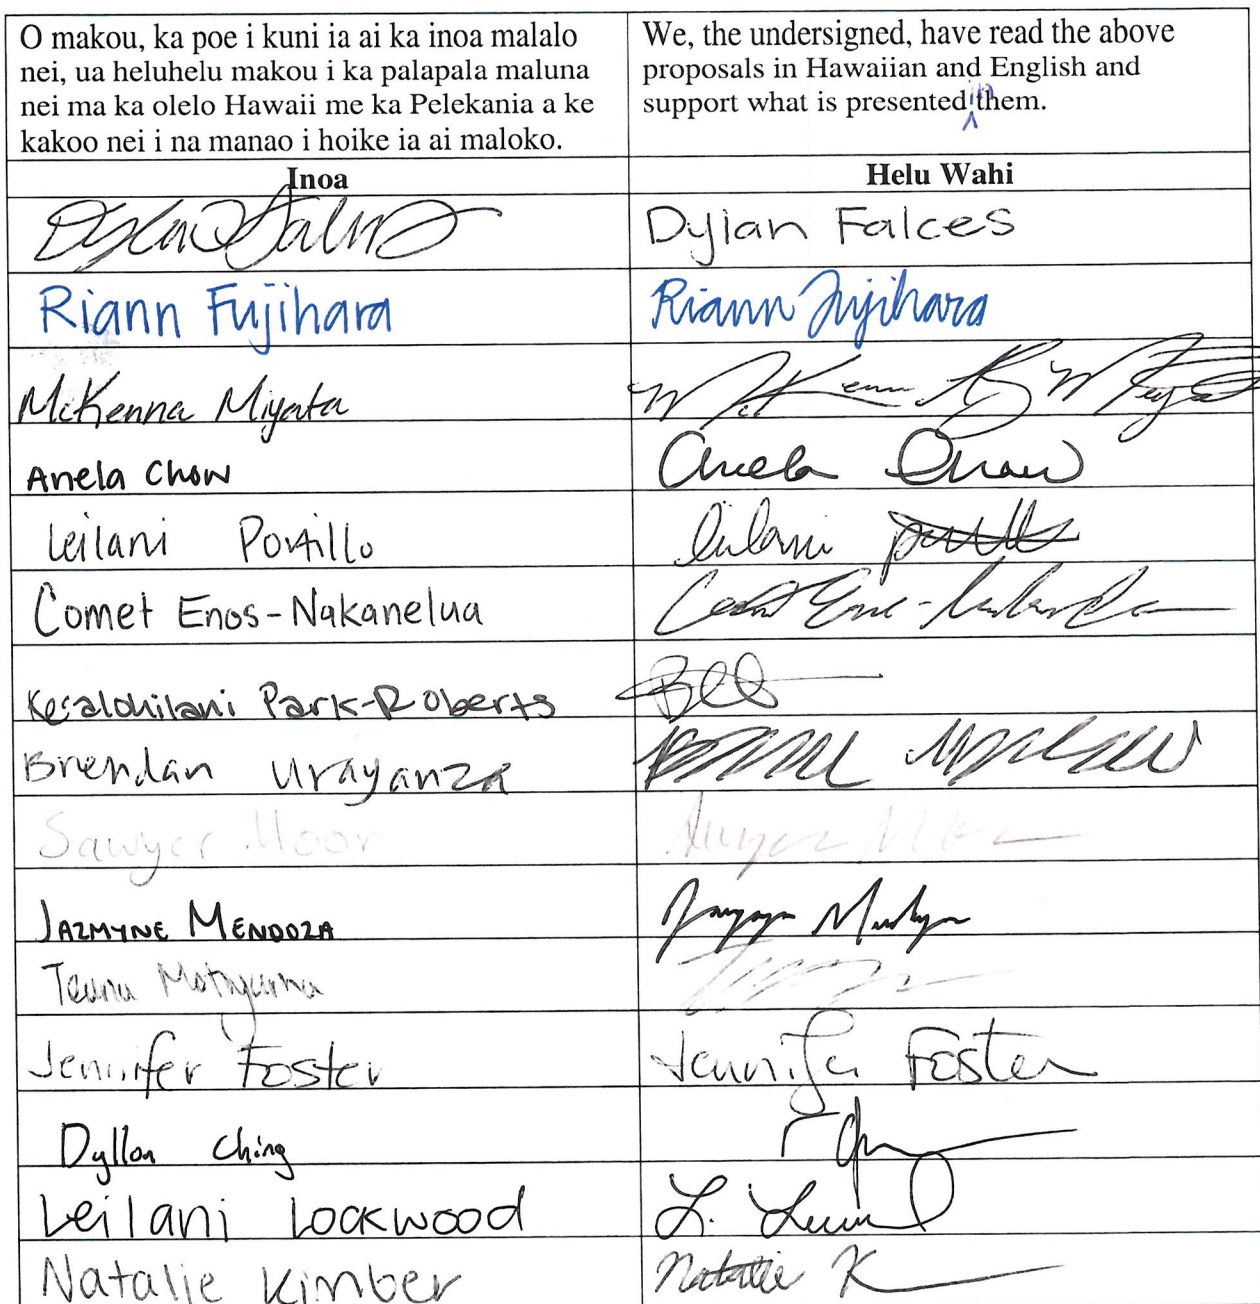 O makou, ka poe i kuni ia ai ka inoa malalo
nei, ua heluhelu makou i ka palapala maluna
nei ma ka olelo Hawaii me ka Pelekania a ke
kakoo nei i na manao i hoike ia ai maloko.
We, the undersigned, have read the above
proposals in Hawaiian and English and
support what is presented in them.
Inoa
Helu Wahi
Dylan Falces
Riann Fujihara
Riann Fujihara
McKenna Miyata
Anela Chow
Anela Chow
Leilani Portillo
Leilani
Comet Enos-Nakanelua
Park-Roberts
Brendan Urayanza
Sawyer
JAZMYNE MENDOZA
Jennifer Foster
Jennifer Foster
Dyllon Ching
Leilani Lockwood
L.
Natalie Kimber
Natalie K